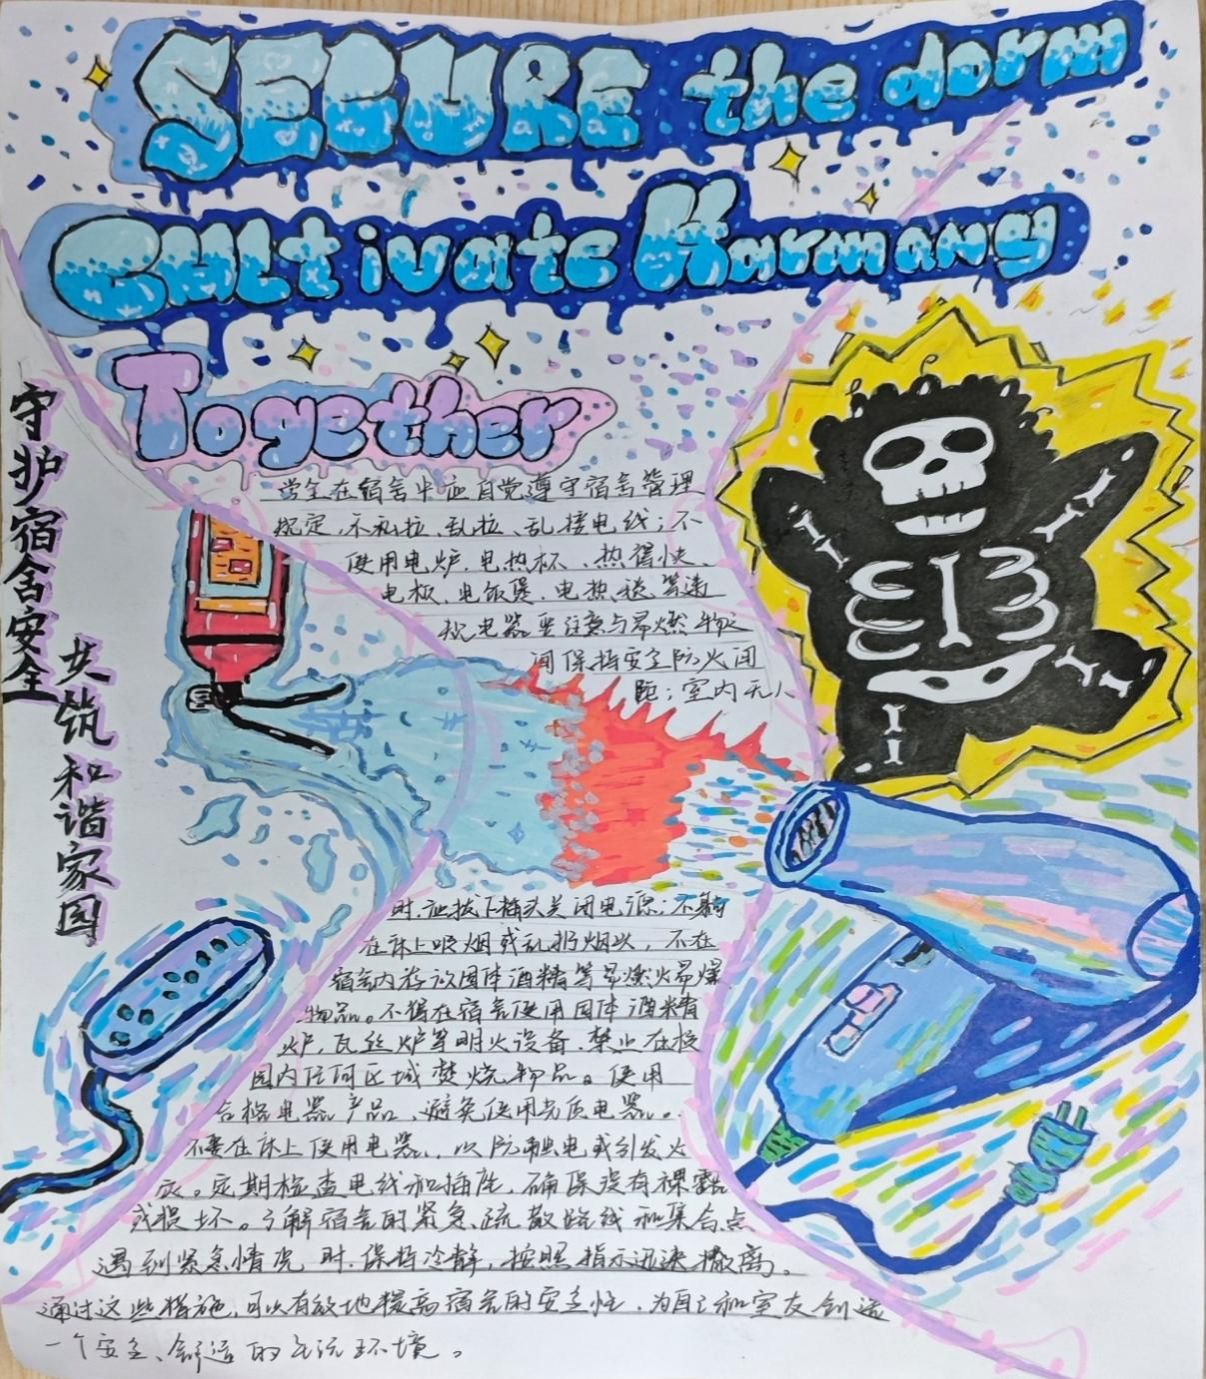 SECURE the dorm
Cultivate Harmany
Together
守护宿舍安全
共筑和谐家园
学生在宿舍中应自觉遵守宿舍管理
规定,不私拉、乱拉、乱接电线;不
使用电炉、电热杯、热得快、
电板、电饭煲、电热毯等违
规电器要注意与易燃物之
间保持安全防火间
距;室内无人
时,应拔下插头关闭电源;不躺
在床上吸烟或乱扔烟头,不在
宿舍内存放固体酒精等易燃火易爆
物品。不得在宿舍使用固体酒精
炉,瓦丝炉等明火设备,禁止在校
园内任何区域焚烧物品。使用
合格电器产品,避免使用劣质电器。
不要在床上使用电器,以防触电或引发火
灾。定期检查电线和插座,确保没有裸露
或损坏。了解宿舍的紧急疏散路线和集合点
遇到紧急情况时,保持冷静,按照指示迅速撤离。
通过这些措施,可以有效地提高宿舍的安全性,为自己和室友创造
一个安全、舒适的生活环境。